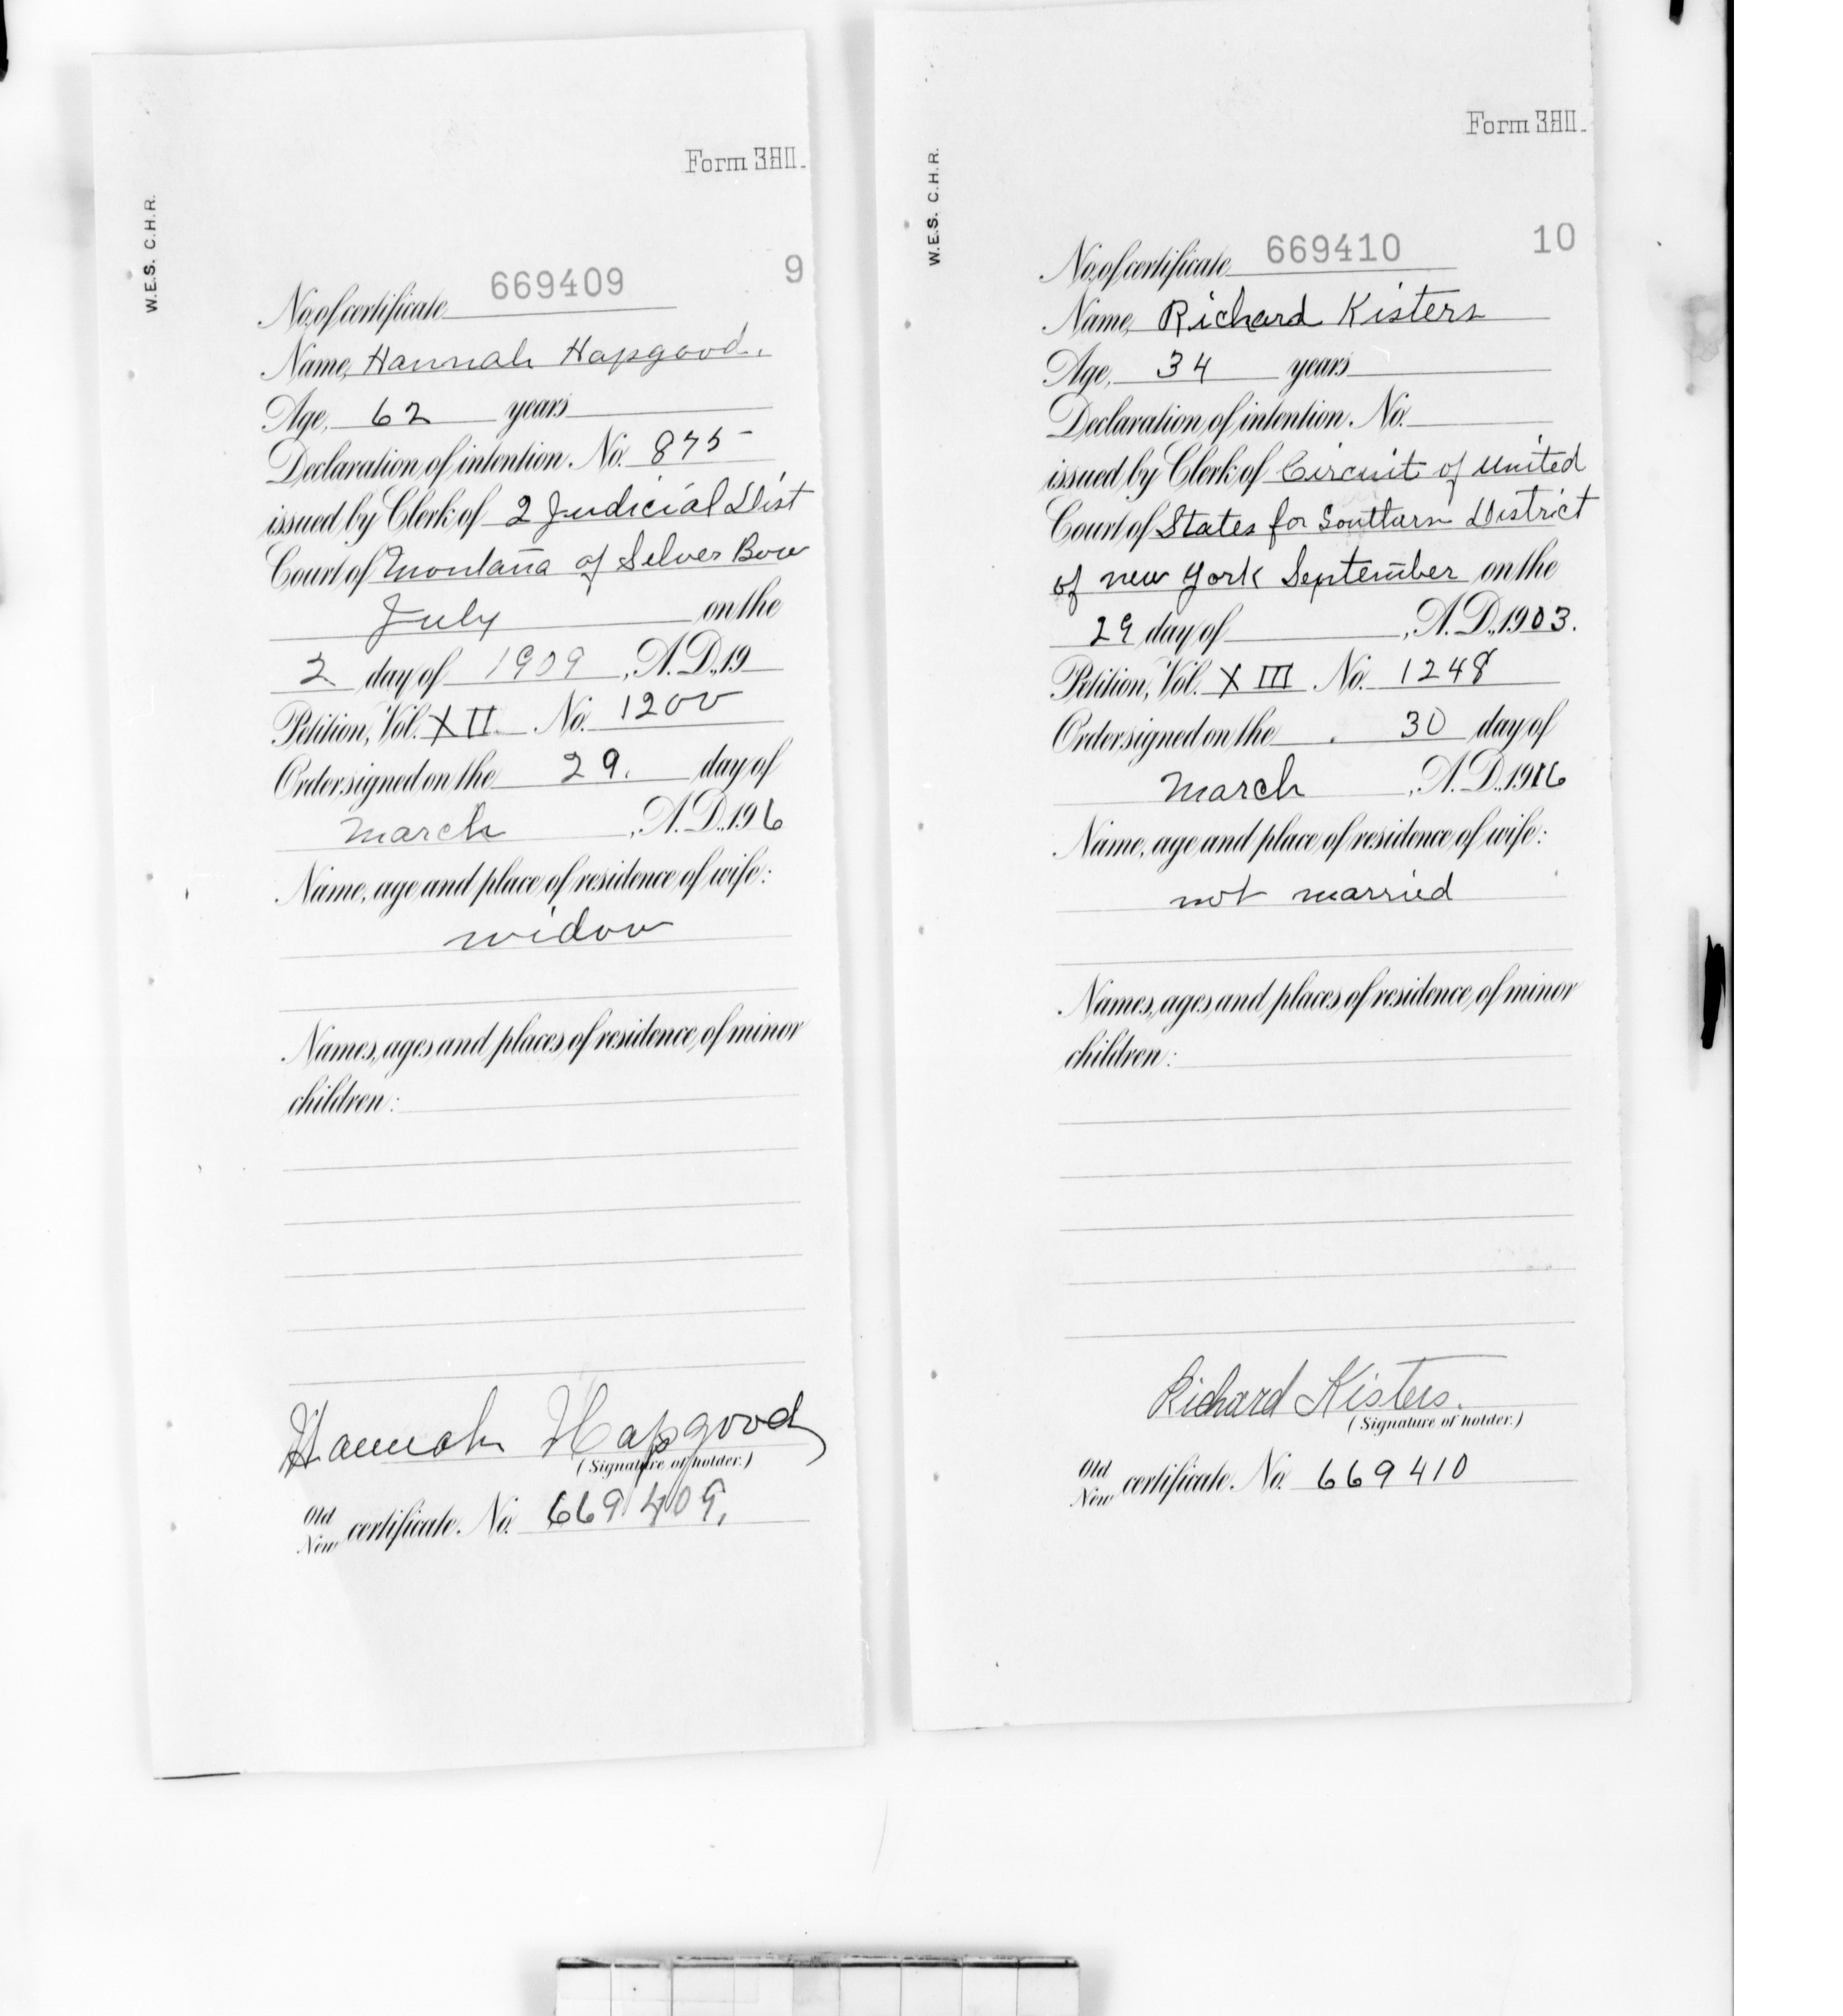 Form 380.
W.E.S. C.H.R.
9
No. of certificate 669409
Name, Hannah Hapgood.
Age, 62 years
Declaration of intention. No. 875
issued by Clerk of 2 Judicial Dist
Court of Montana of Silver Bow
July on the
2 day of 1909, A.D., 19
Petition, Vol. XII. No. 1200
Order signed on the 29. day of
March, A.D., 196
Name, age and place of residence of wife:
widow
Names, ages and places of residence of minor
children:
Hannah Hapgood
(Signature of holder.)
Old
New certificate. No. 669409.
Form 380.
W.E.S. C.H.R.
10
No. of certificate 669410
Name, Richard Kisters
Age, 34 years
Declaration of intention. No.
issued by Clerk of Circuit of United
Court of States for Southern District
of new York September on the
29 day of , A.D., 1903.
Petition, Vol. XIII. No. 1248
Order signed on the . 30 day of
March, A.D., 1916
Name, age and place of residence of wife:
not married
Names, ages and places of residence of minor
children:
Richard Kisters.
(Signature of holder.)
Old
New certificate. No. 669410